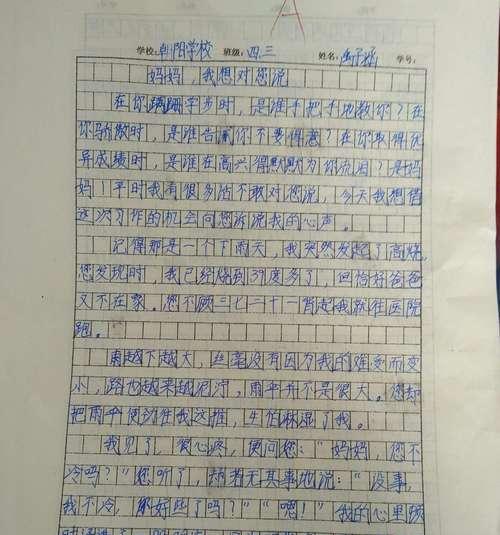 A
学校:朝阳学校 班级:四.三 姓名: 学号:
妈妈，我想对您说
在你蹒跚学步时，是谁手把手地教你？在
你骄傲时，是谁告诫你不要得意？在你取得优
异成绩时，是谁在高兴得默默为你流泪？是妈
妈！平时我有很多话不敢对您说，今天我想借
这次习作的机会向您诉说我的心声。
记得那是一个下雨天，我突然发起了高烧，
您发现时，我已经烧到39度多了，但恰好爸爸
又不在家。您不顾三七二十一背起我就往医院
跑。
雨越下越大，丝毫没有因为我的难受而变
小，路也越来越泥泞，雨伞并不是很大。您却
把雨伞使劲往我这推，生怕淋湿了我。
我见了，很心疼，便问您：“妈妈，您不
冷吗？”您听了，却若无其事地说：“没事，
我不冷，你好些了吗？”“嗯！”我的心里